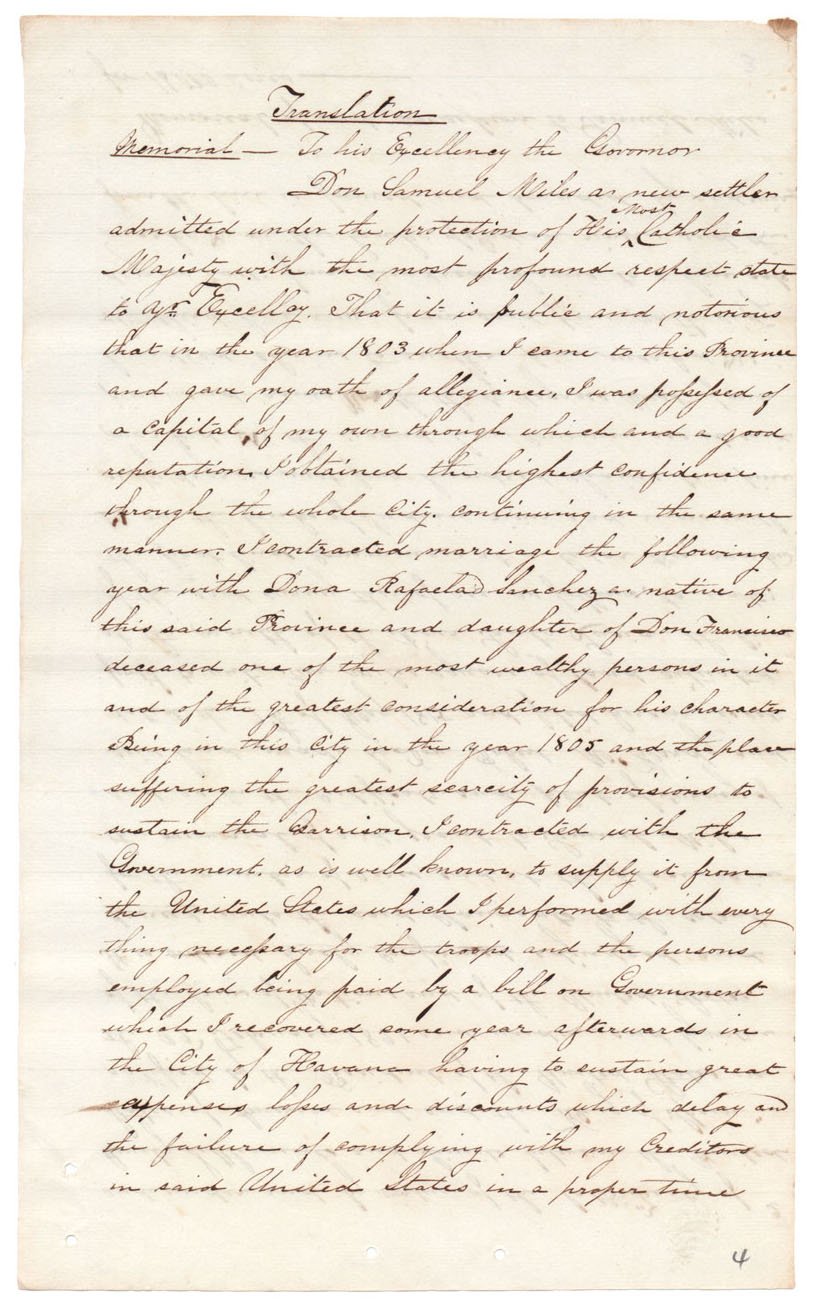 Translation
Memorial — To his Excellency the Governor
Don Samuel Miles a new settler
admitted under the protection of His Most Catholic
Majesty with the most profound respect state
to yr. Excellcy. That it is public and notorious
that in the year 1803 when I came to this Province
and gave my oath of allegiance, I was possessed of
a capital, of my own through which and a good
reputation, I obtained the highest confidence
through the whole City. continuing in the same
manner. I contracted marriage the following
year with Dona Rafaela Sanchez a native of
this said Province and daughter of Don Francisco
deceased one of the most wealthy persons in it
and of the greatest consideration for his character
Being in this City in the year 1805 and the place
suffering the greatest scarcity of provisions to
sustain the Garrison, I contracted with the
Government. as is well known, to supply it from
the United States which I performed with every
thing necessary for the troops and the persons
employed being paid by a bill on Government
which I recovered some year afterwards in
the City of Havana having to sustain great
expenses losses and discounts which delay and
the failure of complying with my Creditors
in said United States in a proper time
4